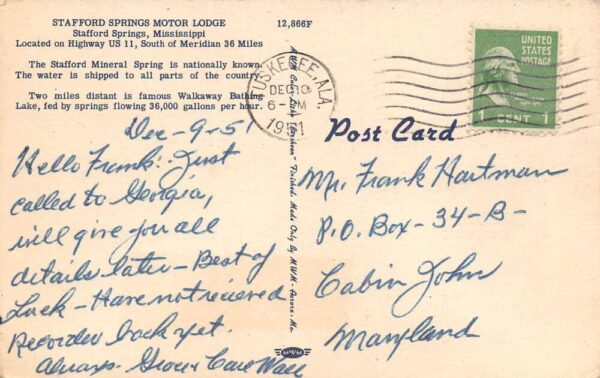 STAFFORD SPRINGS MOTOR LODGE
Stafford Springs, Mississippi
Located on Highway US 11, South of Meridian 36 Miles
12,866F
The Stafford Mineral Spring is nationally known.
The water is shipped to all parts of the country.
Two miles distant is famous Walkaway Bathing
Lake, fed by springs flowing 36,000 gallons per hour.
Dec-9-51
Hello Frank: Just
called to Georgia,
will give you all
details later - Best of
Luck - Have not recieved
Recorder back yet.
Always -
TUSKEGEE, ALA.
DEC 10
6- PM
1951
UNITED
STATES
POSTAGE
1 CENT 1
Post Card
Mr. Frank Hartman
P.O. Box-34-B-
Cabin John
Maryland
Finished. Made Only By M.W.M.-Aurora-Mo.
MWM